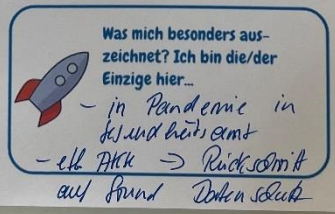 Was mich besonders aus-
zeichnet? Ich bin die/der
Einzige hier...
- in Pandemie in
Gesundheitsamt
- AKK -> Rückschritt
auf Grund Datenschutz